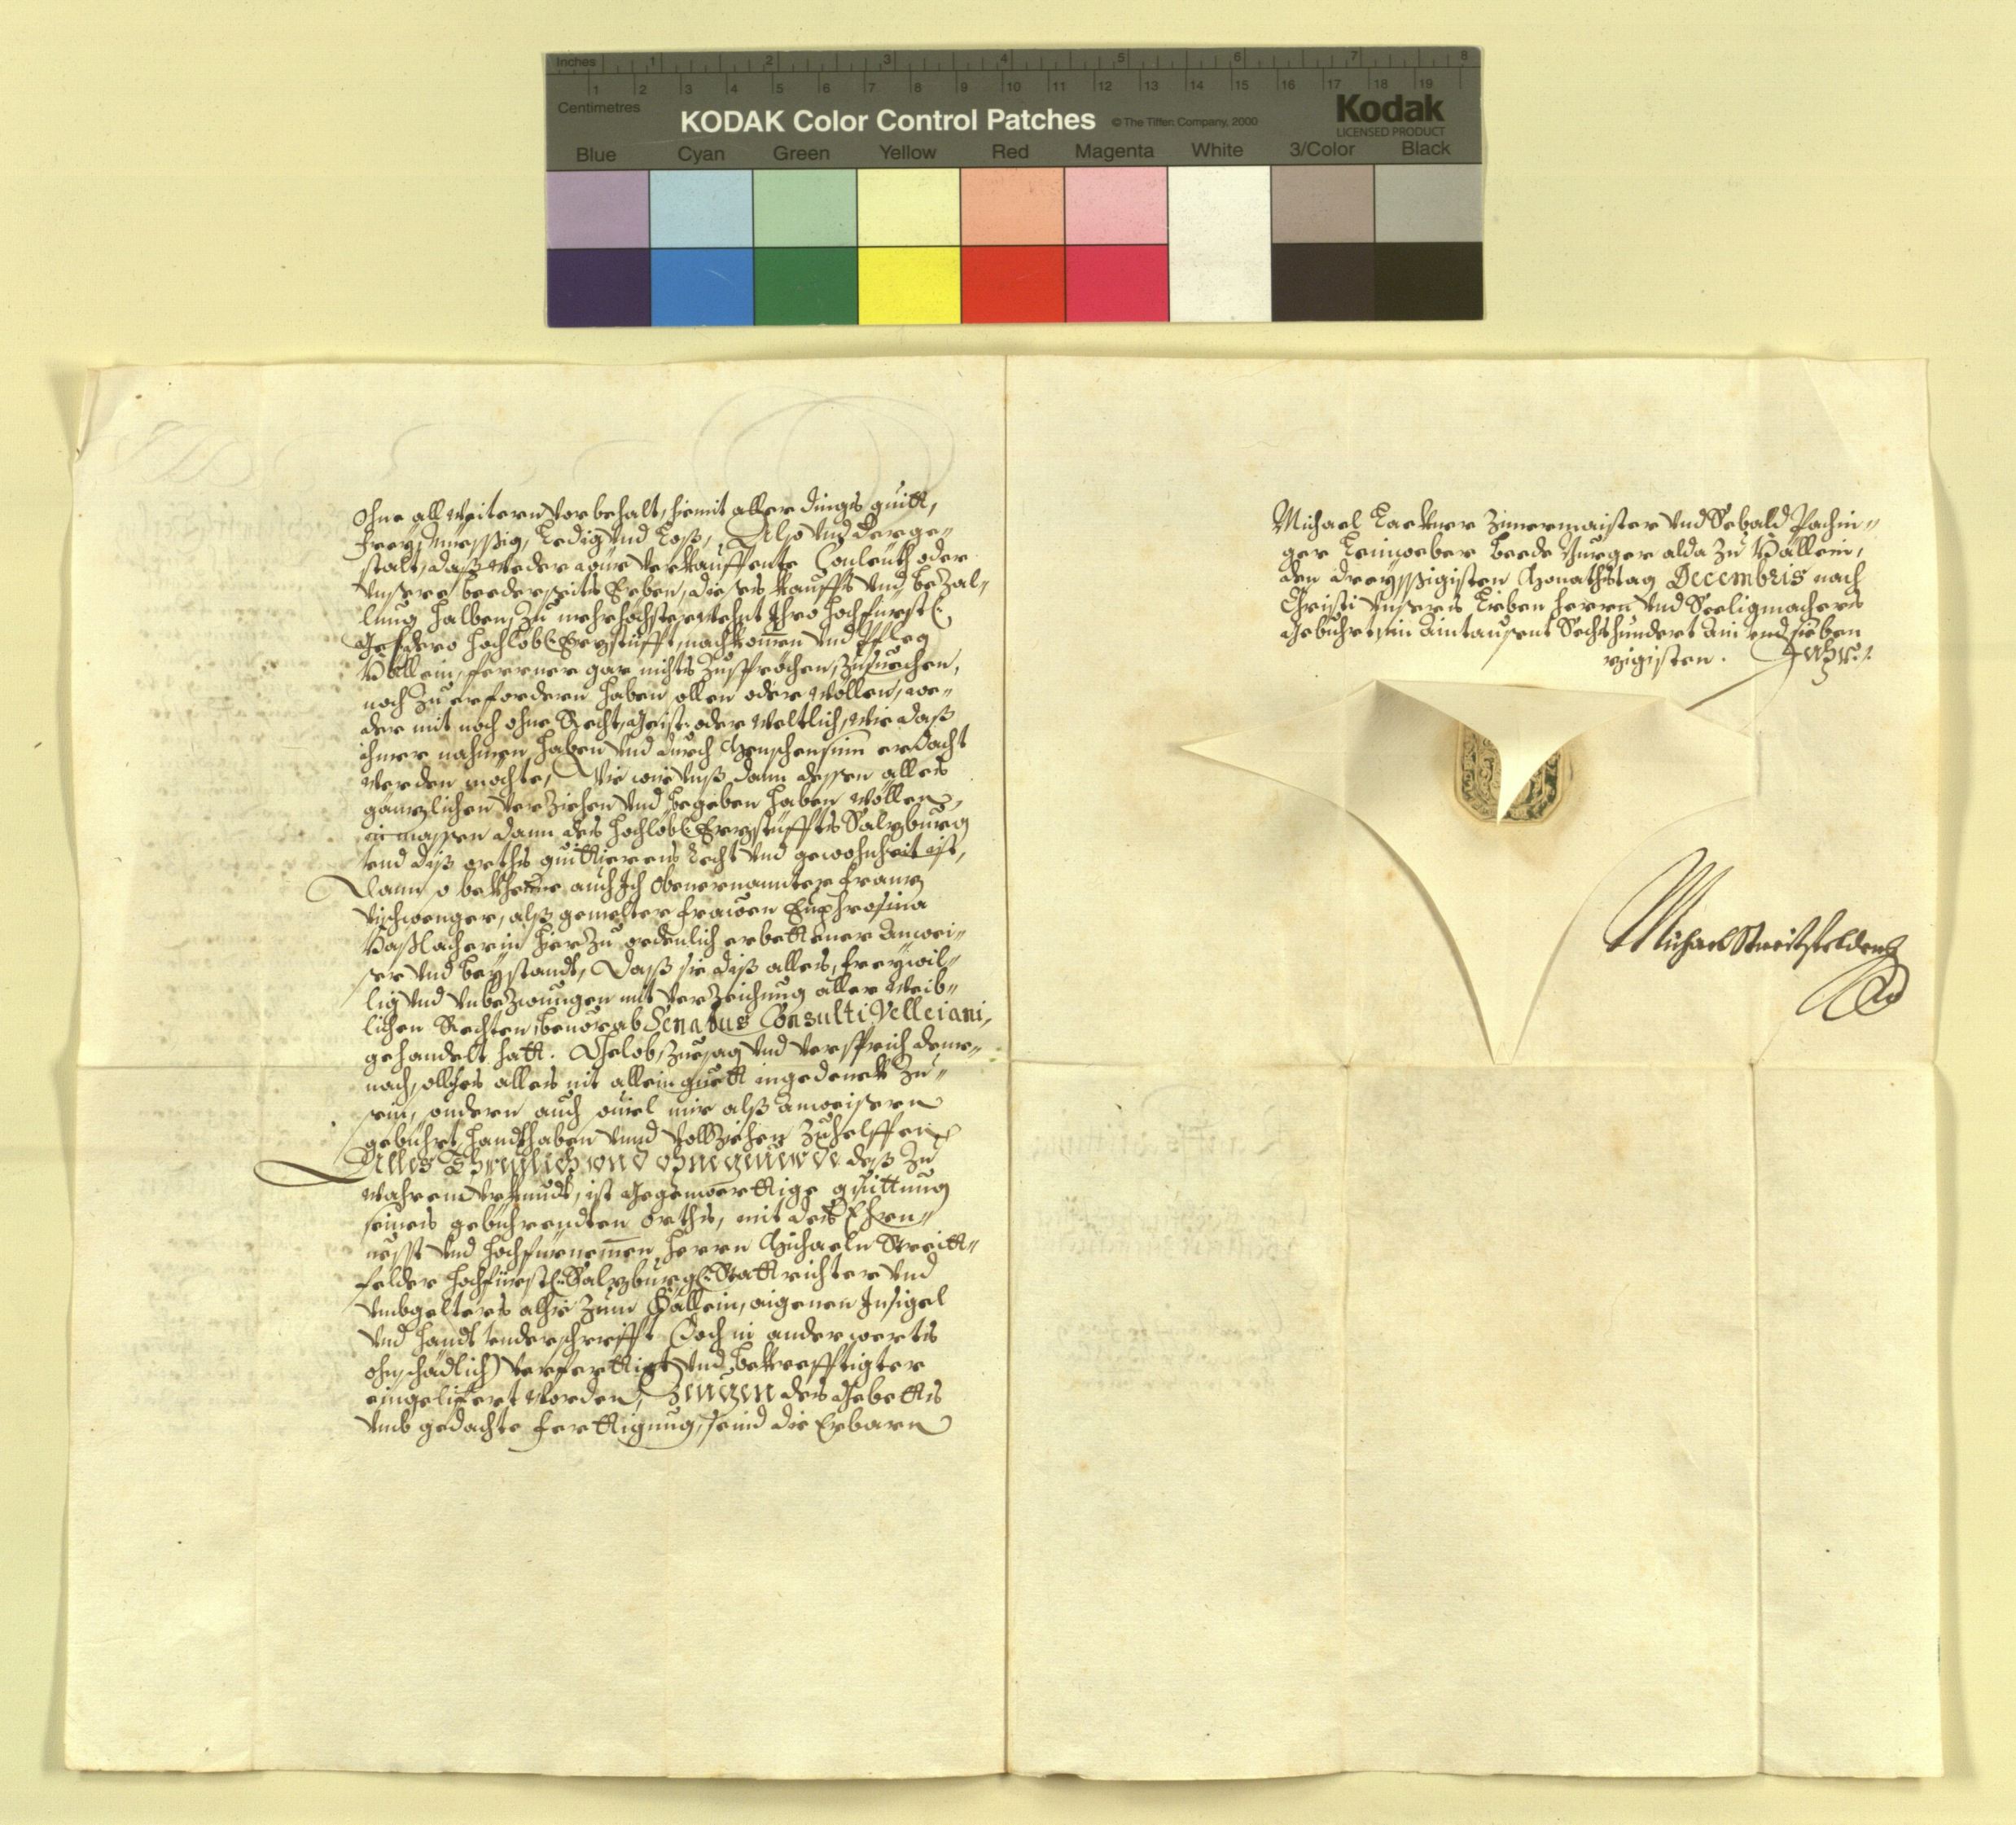 Inches 1 2 3 4 5 6 7 8
Centimetres 1 2 3 4 5 6 7 8 9 10 11 12 13 14 15 16 17 18 19
KODAK Color Control Patches © The Tiffen Company, 2000 Kodak
LICENSED PRODUCT
Blue Cyan Green Yellow Red Magenta White 3/Color Black
ohne all weitern vorbehalt, hiemit allerdings quitt,
frey, müessig, ledig und loß, Also und derge-
stalt, daß weder wür verkauffente Conleüth oder
unsere beederseits Erben, dises kauffs und bezal-
lung halben, zu mehrhöchsternehnt Ihro hochfürstl:
Gn: dero hochlöbl: Erzstüfft, nachkomen und Pfleg
Hällein, ferrner gar nichts zusprechen, zusuechen,
noch zuerfordern haben sollen oder wollen, we-
der mit noch ohne Recht, Geist: oder Weltlich, wie daß
immer nahmen haben und durch Menschensinn erdacht
werden möchte, Wie wir unß dann dessen alles
gänzlichen verziehen und begeben haben wöllen,
inmassen dann des hochlöbl: Erzstüffts Salzburg
und diß orths quittierens Recht und gewohnheit ist,
Dann so bekhenne auch Ich obenernannter Franz
Vischwenger, alß gemelter frawen Euphrosina
Haßlacherin hierzu ordenlich erbettener Anwei-
ser und beystandt, Daß sie diß alles, freywil-
lig und unbezwungen mit verzeichung aller Weib-
lichen Rechten, beuorab Senatus Consulti Velleiani,
gehandelt hatt. Gelob, zuesag und versprich deme-
nach, solches alles nit allein quett ingedenck zu-
sein, sondern auch souiel mir alß Anweisern
gebührt, handthaben unnd vollziehen zuhelffen
Alles Threulich und ohngeuerde deß zu
wahrem Urkundt, ist gegenwerttige quittung
seines gebührendten orths, mit des Ehren-
uesst und hochfürnemen Herrn Michaeln Streitt-
felder hochfürstl: Salzburgl: Stattrichter und
Umbgelters alhie zum Hällein, aigenen Insigel
und handt underschrifft (doch in anderwerts
ohnschädlich) verferttigt und bekrefftigter
eingelifert worden, Zeugen des Gebetts
umb gedachte ferttigung, seind die Erbarn
Michael Lackner Zimermaister und Sebald Pachin-
ger Leinweber beede Burger alda zu Hällein,
den dreyssigisten Monathstag Decembris nach
Christi unsers lieben herrn und Seeligmachers
Gebührt, im Aintausent Sechshundert Ain und sieben
zigisten.
Michael Streitfelder